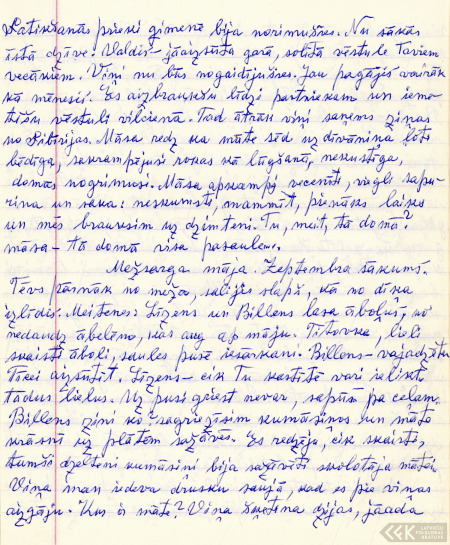 Satikšanās prieki ģimenē bija norimušies. Nu sākās
īstā dzīve. Valdis – jāaizsūta garā, solītā vēstule Taviem
vecākiem. Viņi nu būs nogaidījušies. Jau pagājis vairāk
kā mēnesis. Es aizbraukšu līdzi pastniekam un iemetīšu
vēstuli vilcienā. Tad ātrāk viņi saņems ziņas
no Sibirijas. Māsa redz ka māte sēd uz dīvāniņa ļoti
bēdīga, sakrampējusi rokas kā lūgšanā, nekustīga,
domās nogrimuse. Māsa apskampj vecenīti, viegli sapurina
un saka: neskumsti, mammīt, pienāks laiks
un mēs brauksim uz dzimteni. Tu, meit, tā domā?
māsa – tā domā visa pasaule.
Mežsarga māja. Septembra sākums.
Tēvs pārnāk no meža, salijis slapjš, kā no dīķa
izlīdis. Meitenes: Līzens un Billens lasa ābolus, no
nedaudz ābelēm, kas aug ap māju. Titovka, lieli
skaisti āboli, saules pusē iesarkani. Billens – vajadzētu
Tikei aizsūtīt. Līzens – cik Tu kastītē vari ielikt
tādus lielus. Uz pusi griezt nevar, sapūs pa ceļam.
Billens zini ko sagriezīsim kumāsiņos un māte
krāsnī uz plātēm sažāvēs. Es redzēju, cik skaisti,
tumši dzelteni kumāsiņi bija sažāvēti skolotāja mātei.
Viņa man iedeva drusku saujā, kad es pie viņas
aizgāju. Kur ir māte? Viņa šķetina dzijas, jāadā
LATVIEŠU FOLKLORAS KRĀTUVE